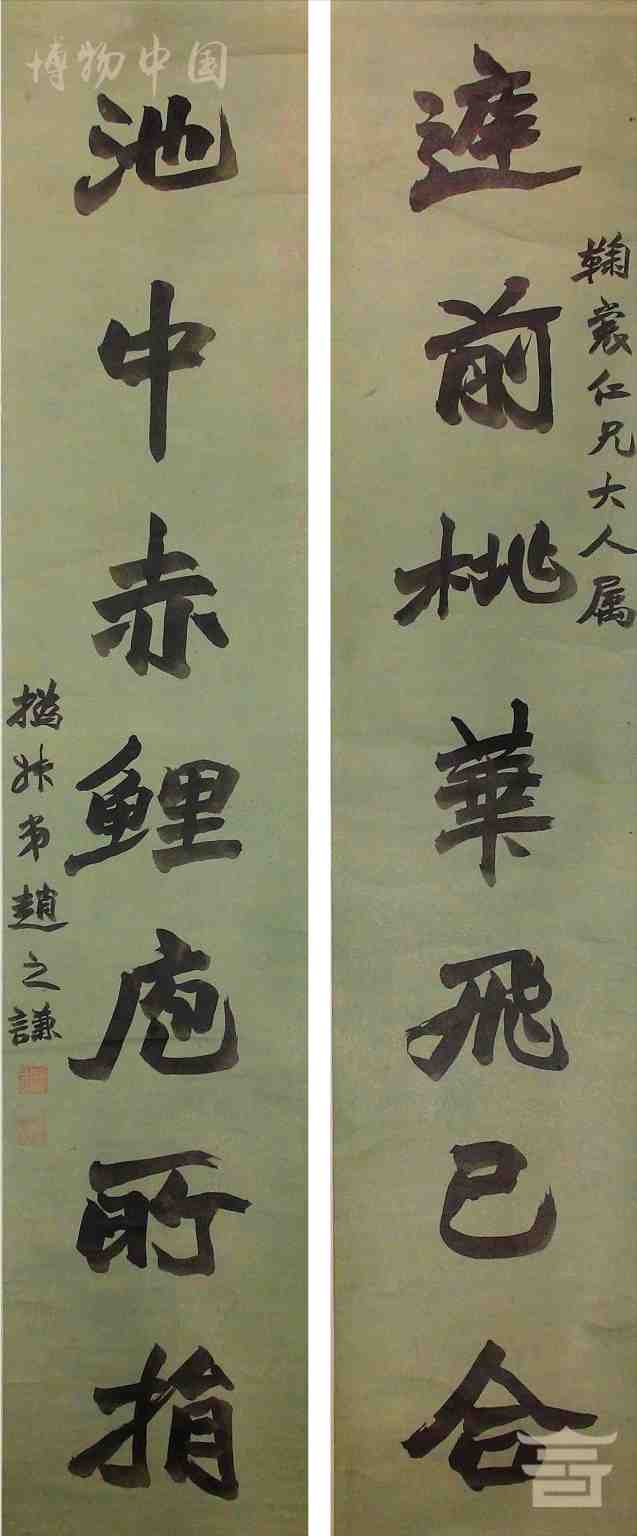 鞠裳仁兄大人属
庭前桃華飛已合
池中赤鯉庖所捐
撝叔弟趙之謙
博物中国